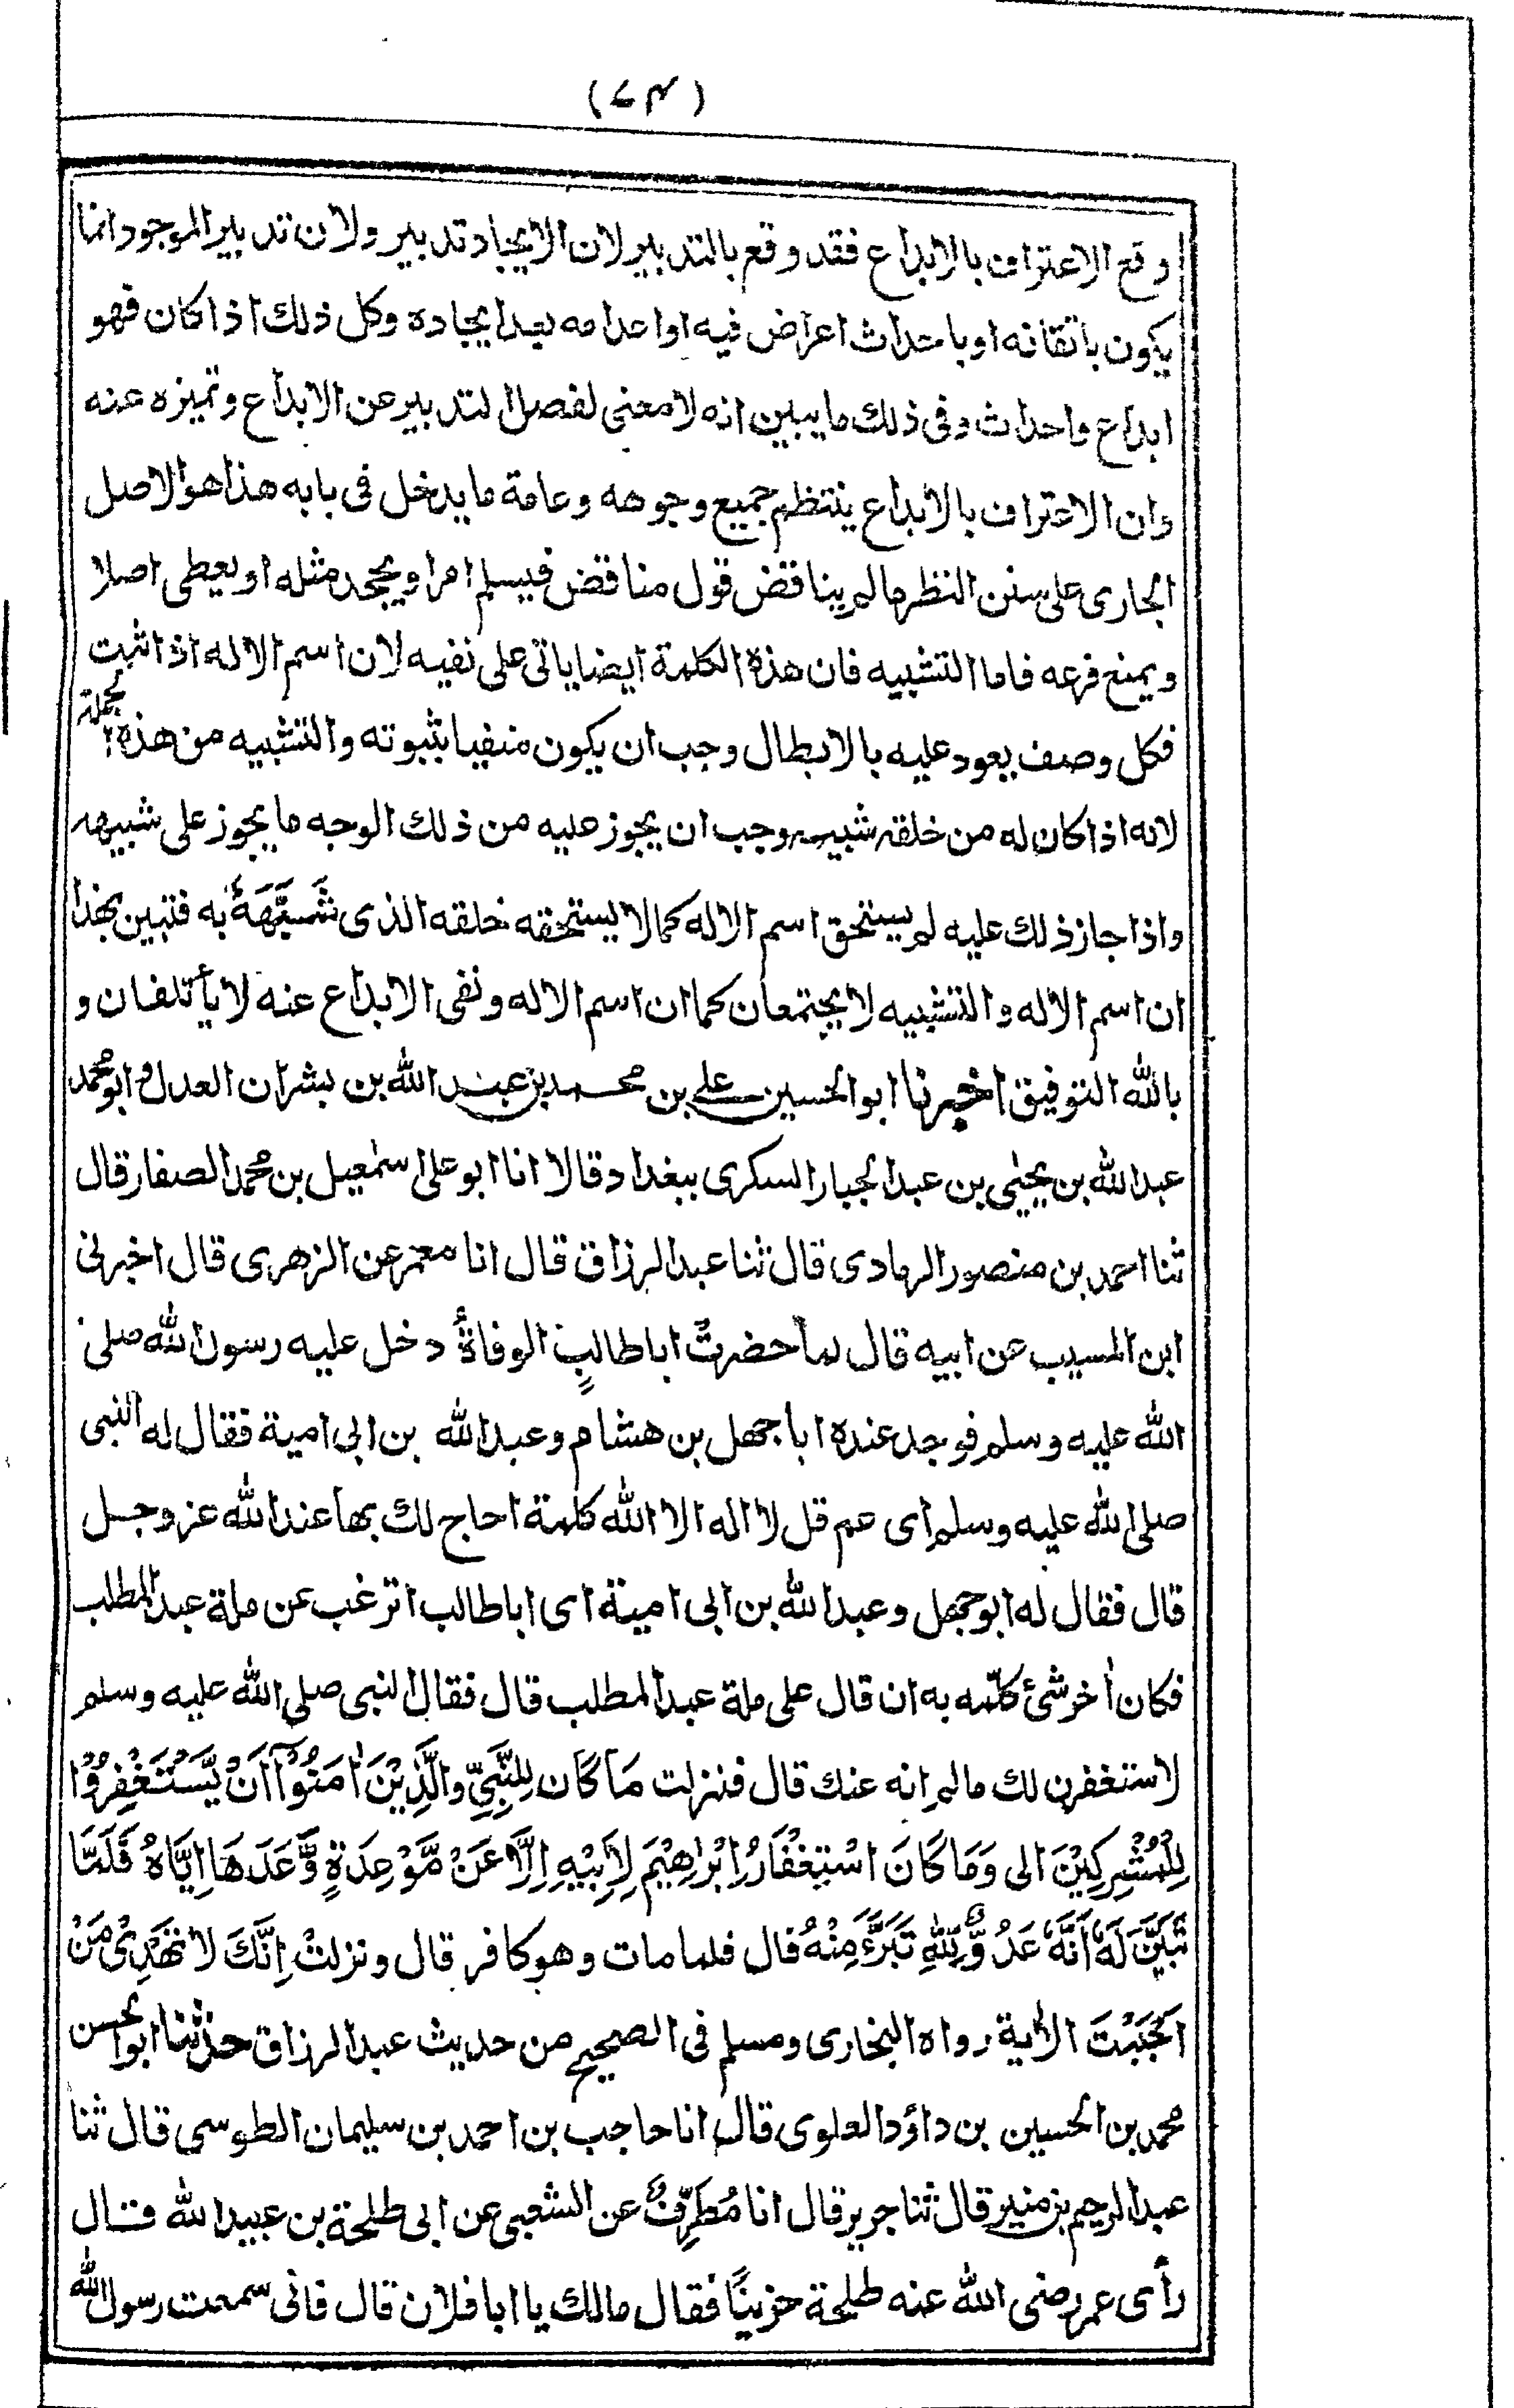 (۷۴)
وقع الاعتراف بالابداع فقد وقع بالتدبير لان الايجاد تدبير ولان تدبير الموجود انما
يكون باتقانه او باحداث اعراض فيه او اعدامه بعد ايجاده وكل ذلك اذا كان فهو
ابداع واحداث وفى ذلك ما يبين انه لا معنى لفصل التدبير عن الابداع وتميزه عنه
وان الاعتراف بالابداع ينتظم جميع وجوهه وعامة ما يدخل فى بابه هذا هو الاصل
الجارى على سنن النظر ما لم يناقض قول مناقض فيسلم امرا ويجحد مثله او يعطى اصلا
ويمنع فرعه فاما التشبيه فان هذه الكلمة ايضا ياتى على نفيه لان اسم الاله اذا اثبت
فكل وصف يعود عليه بالابطال وجب ان يكون منفيا بثبوته والتشبيه من هذه الجملة
لانه اذا كان له من خلقه شبيه وجب ان يجوز عليه من ذلك الوجه ما يجوز على شبيهه
واذا جاز ذلك عليه لم يستحق اسم الاله كما لا يستحقه خلقه الذى شَبَّهَهٗ به فتبين بهذا
ان اسم الاله والتشبيه لا يجتمعان كما ان اسم الاله ونفى الابداع عنه لا يأتلفان و
بالله التوفيق اخبرنا ابو الحسين على بن محمد بن عبد الله بن بشران العدل وابو محمد
عبد الله بن يحيٰى بن عبد الجبار السكرى ببغداد قالا انا ابو على اسمٰعيل بن محمد الصفار قال
ثنا احمد بن منصور الرمادى قال ثنا عبد الرزاق قال انا معمر عن الزهرى قال اخبرنى
ابن المسيب عن ابيه قال لما حضرتْ ابا طالبٍ الوفاةُ دخل عليه رسول الله صلى
الله عليه وسلم فوجد عنده ابا جهل بن هشام وعبد الله بن ابى امية فقال له النبى
صلى الله عليه وسلم اى عم قل لا اله الا الله كلمة احاج لك بها عند الله عز وجل
قال فقال له ابو جهل وعبد الله بن ابى امية اى ابا طالب اترغب عن ملة عبد المطلب
فكان أخر شئ كلّمه به ان قال على ملة عبد المطلب قال فقال النبى صلى الله عليه وسلم
لاستغفرن لك ما لم انه عنك قال فنزلت مَا كَان لِلنَّبِيِّ والَّذِيْنَ اٰمَنُوْٓا اَنْ يَّسْتَغْفِرُوْا
لِلْمُشْرِكِيْنَ الى وَمَا كَانَ اسْتِغْفَارُ اِبْرَاهِيْمَ لِاَبِيْهِ اِلَّا عَنْ مَّوْعِدَةٍ وَّعَدَهَا اِيَّاهُ فَلَمَّا
تَبَيَّنَ لَهٗ اَنَّهٗ عَدُوٌّ لِّلّٰهِ تَبَرَّءَ مِنْهُ قال فلما مات وهو كافر قال ونزلتْ اِنَّكَ لَا تَهْدِىْ مَنْ
اَحْبَبْتَ الاٰية رواه البخارى ومسلم فى الصحيح من حديث عبد الرزاق حدثنا ابو الحسن
محمد بن الحسين بن داؤد العلوى قال انا حاجب بن احمد بن سليمان الطوسى قال ثنا
عبد الرحيم بن منير قال ثنا جرير قال انا مُطَرِّفٌ عن الشعبى عن ابى طلحة بن عبيد الله قال
رأى عمر رضى الله عنه طلحة حزينًا فقال مالك يا ابا فلان قال فانى سمعت رسول الله